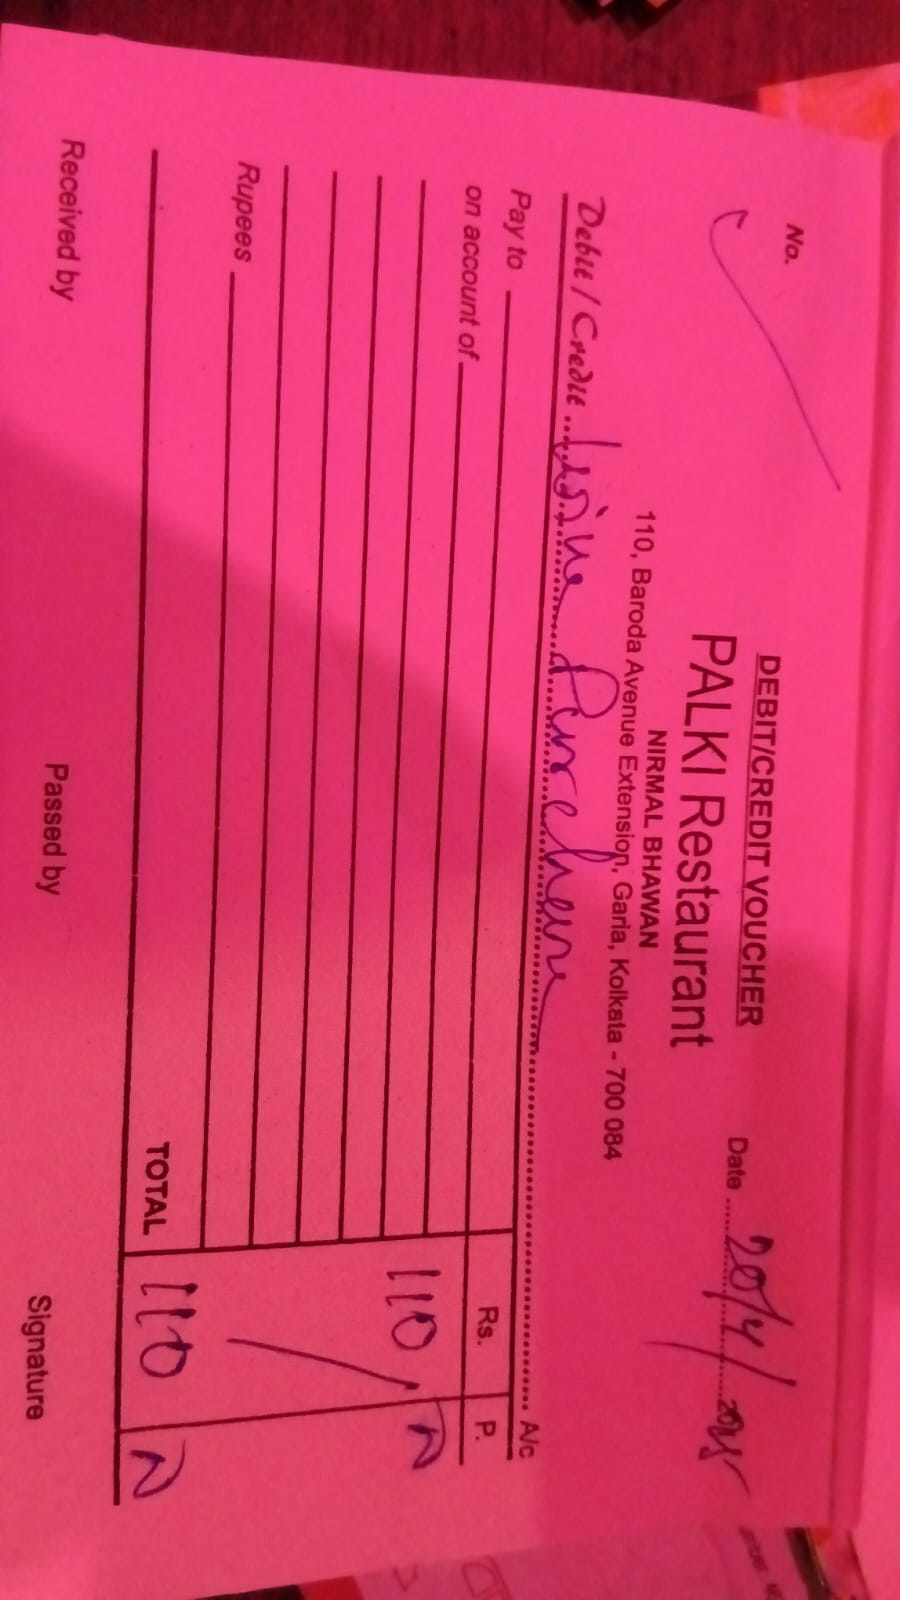 No.
DEBIT/CREDIT VOUCHER
PALKI Restaurant
NIRMAL BHAWAN
110, Baroda Avenue Extension, Garia, Kolkata - 700 084
Date 20/4/2025
Debit / Credit Wine Purchase A/c
Pay to
on account of
Rs. P.
110
Rupees
TOTAL 110
Received by Passed by Signature